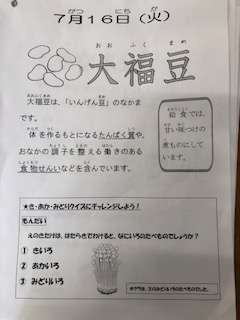 ７月１６日（火）
大福豆
大福豆は、「いんげん豆」のなかま
です。
体を作るもとになるたんぱく質や、
おなかの調子を整える働きのある
食物せんいなどを含んでいます。
給食では、
甘い味つけの
煮ものにして
います。
★き・あか・みどりクイズにチャレンジしよう！
もんだい
えのきたけは、はたらきでわけると、なにいろのたべものでしょうか？
① きいろ
② あかいろ
③ みどりいろ